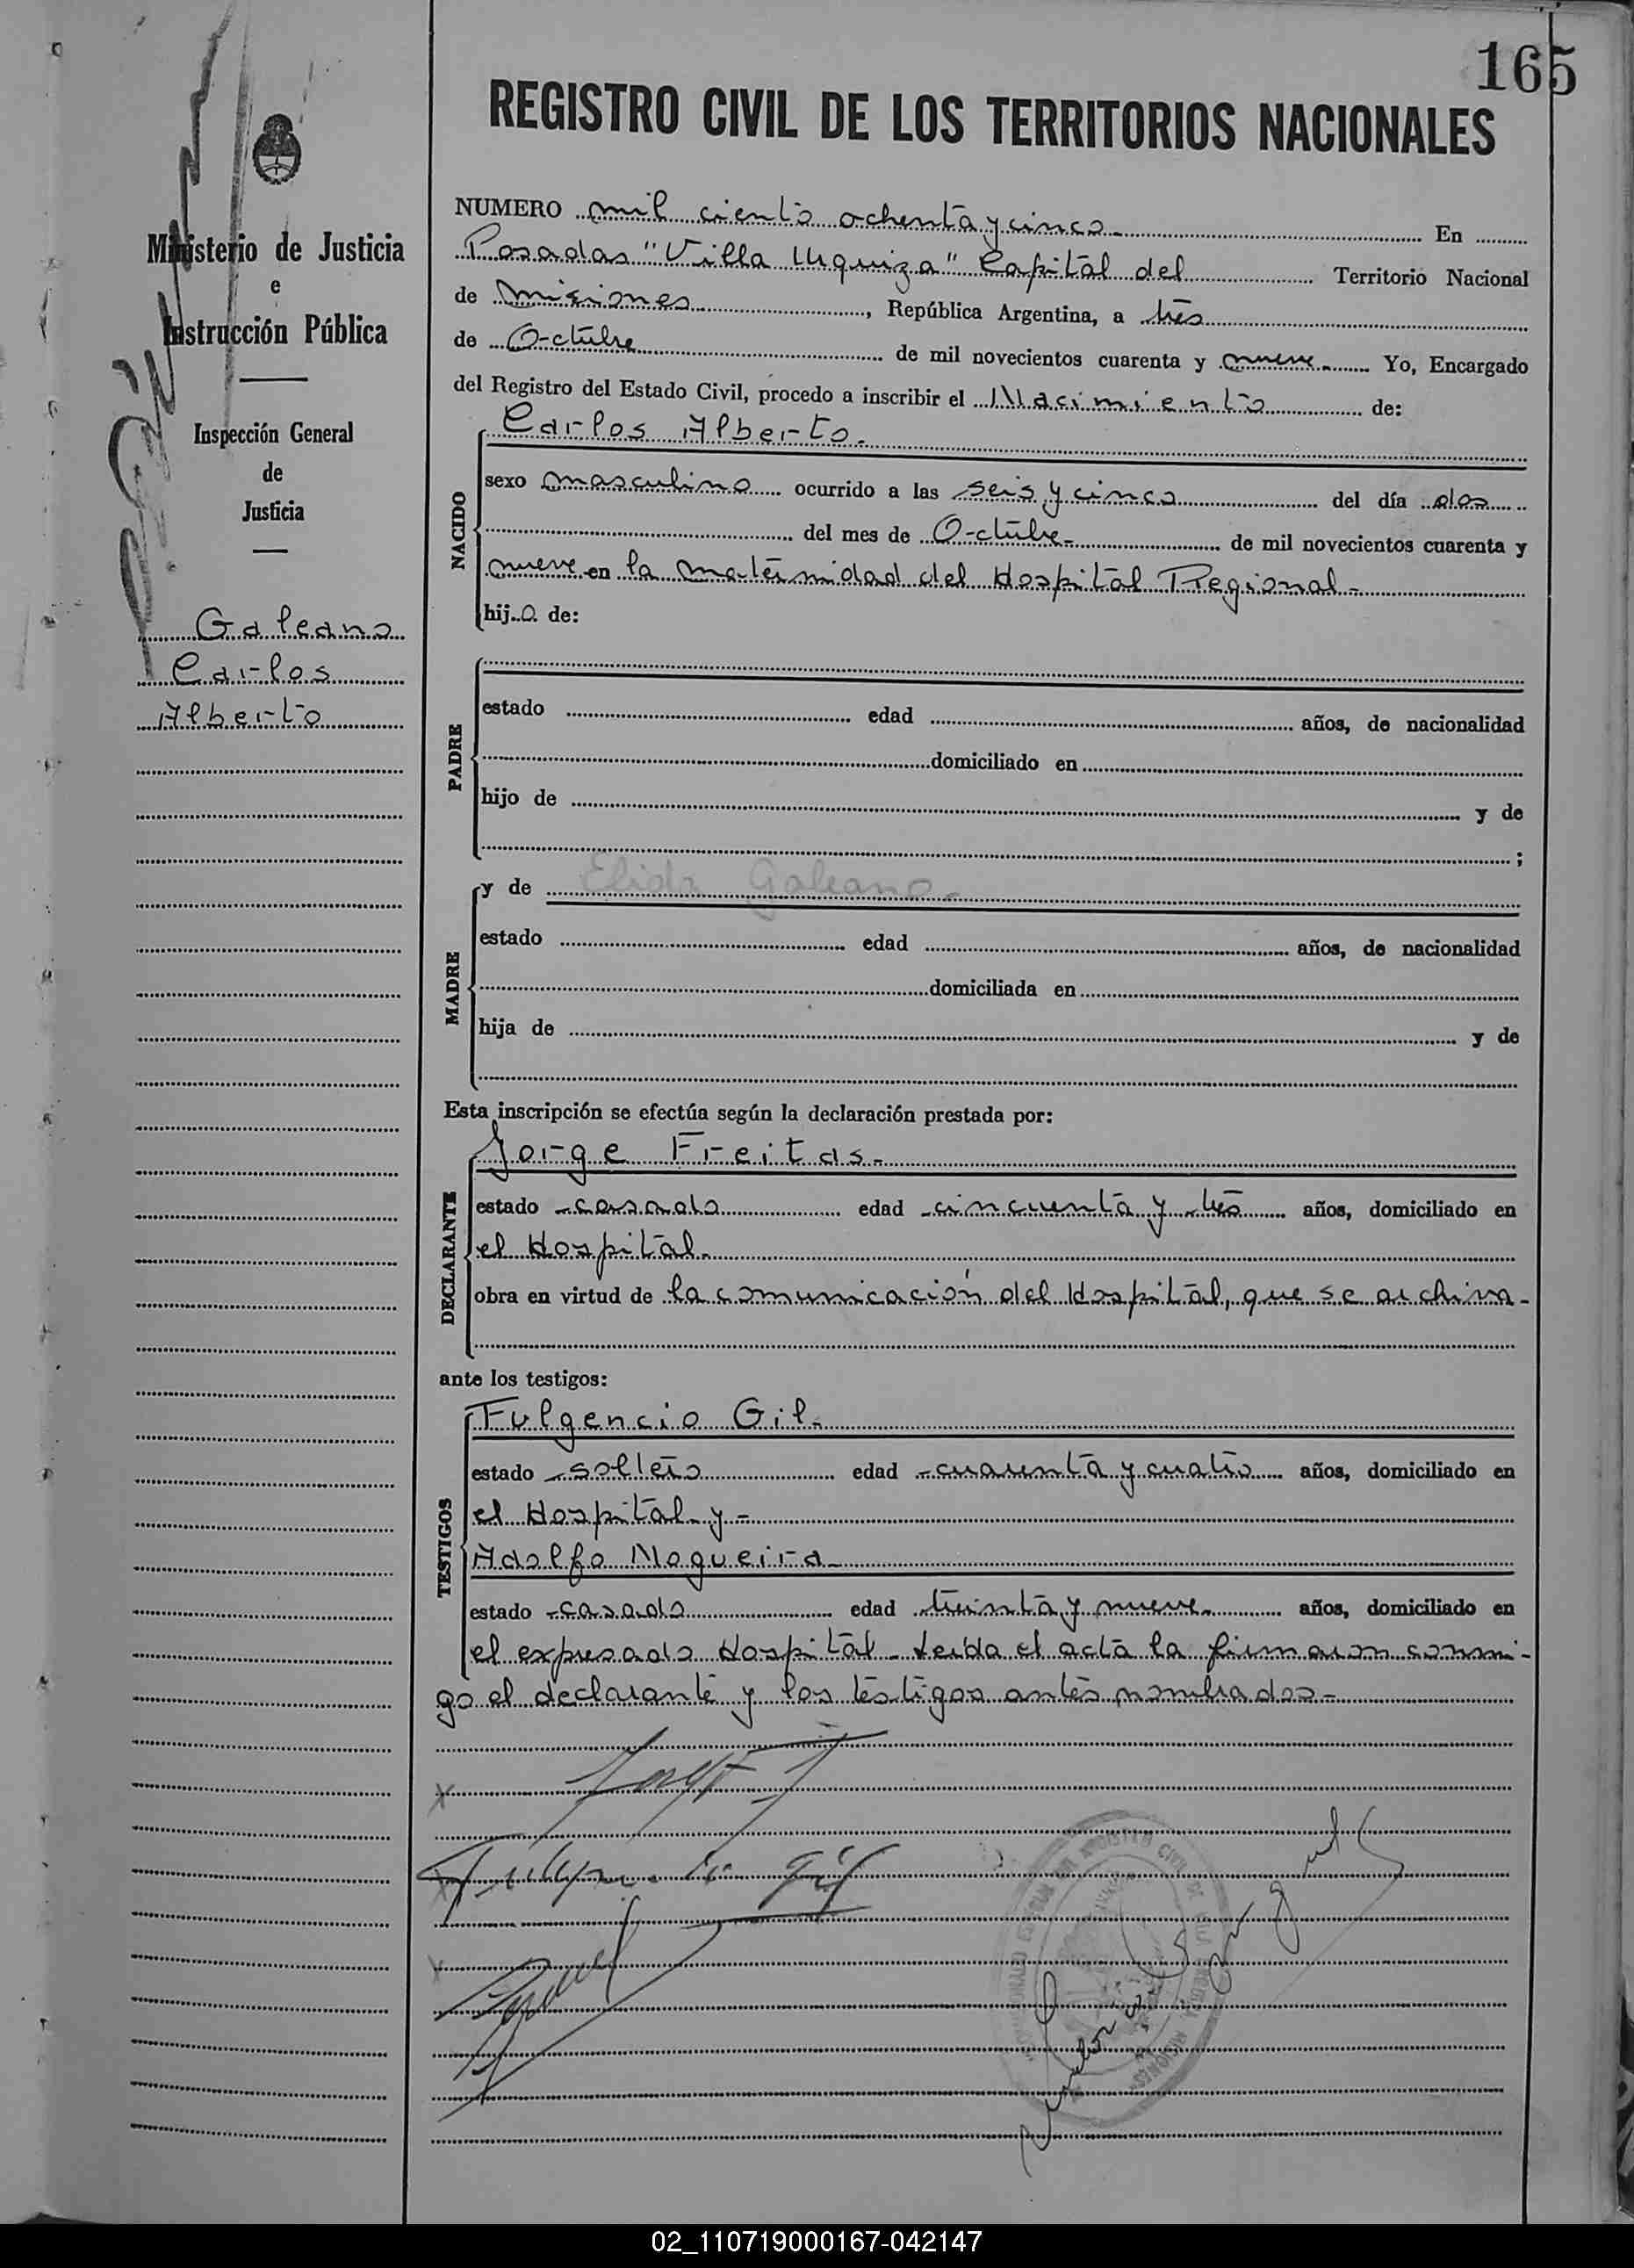 165
REGISTRO CIVIL DE LOS TERRITORIOS NACIONALES
Ministerio de Justicia
e
Instrucción Pública
Inspección General
de
Justicia
Galeano
Carlos
Alberto
NUMERO mil ciento ochenta y cinco En
Posadas "Villa Urquiza" Capital del Territorio Nacional
de Misiones, República Argentina, a tres
de Octubre de mil novecientos cuarenta y nueve Yo, Encargado
del Registro del Estado Civil, procedo a inscribir el Nacimiento de:
NACIDO
Carlos Alberto.
sexo masculino ocurrido a las seis y cinco del día dos
del mes de Octubre de mil novecientos cuarenta y
nueve en la maternidad del Hospital Regional-
hijo de:
PADRE
estado edad años, de nacionalidad
domiciliado en
hijo de y de
;
MADRE
y de Elida Galeano-
estado edad años, de nacionalidad
domiciliada en
hija de y de
Esta inscripción se efectúa según la declaración prestada por:
DECLARANTE
Jorge Freitas-
estado casado edad cincuenta y tres años, domiciliado en
el Hospital.
obra en virtud de la comunicación del Hospital, que se archiva-
ante los testigos:
TESTIGOS
Fulgencio Gil-
estado soltero edad cuarenta y cuatro años, domiciliado en
el Hospital y-
Adolfo Nogueira
estado casado edad treinta y nueve años, domiciliado en
el expresado Hospital- Leída el acta la firmaron conmi-
go el declarante y los testigos antes nombrados-
02_110719000167-042147